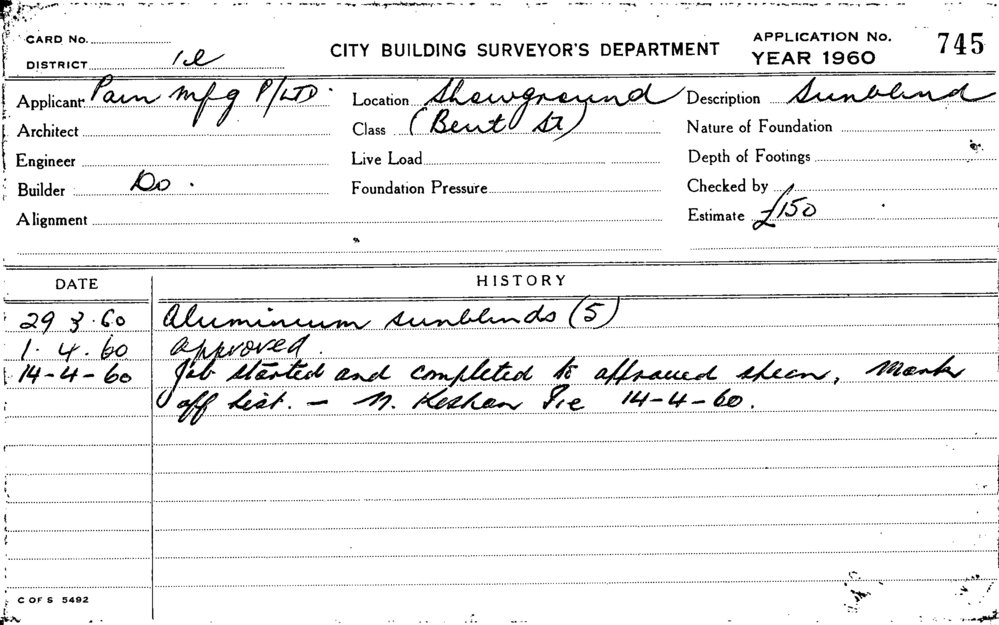 CARD No.
DISTRICT
CITY BUILDING SURVEYOR'S DEPARTMENT
APPLICATION No. 745
YEAR 1960
Applicant Pain Mfg P/LTD.
Location Showground
Description Sunblind
Architect
Class (Bent St)
Nature of Foundation
Engineer
Live Load
Depth of Footings
Builder Do.
Foundation Pressure
Checked by
Alignment
Estimate £150
DATE HISTORY
29 3.60 Aluminium sunblinds (5)
1.4.60 Approved.
14-4-60 Job started and completed to approved specn, Mark
off list. — N. 14-4-60.
C OF S 5492